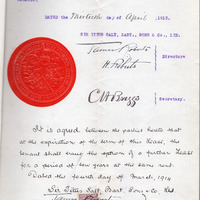 DATED the Thirtieth day of April, 1913.
SIR TITUS SALT, BART. SONS & Co. LTD.
James Roberts
Directors
H. Roberts
Secretary.
It is agreed between the parties hereto that
at the expiration of the term of this lease, the
tenant shall have the option of a further lease
for a period of ten years at the same rent.
Dated the fourth day of March, 1914
Sir Titus Salt, Bart Sons & Co. Ltd
James Roberts